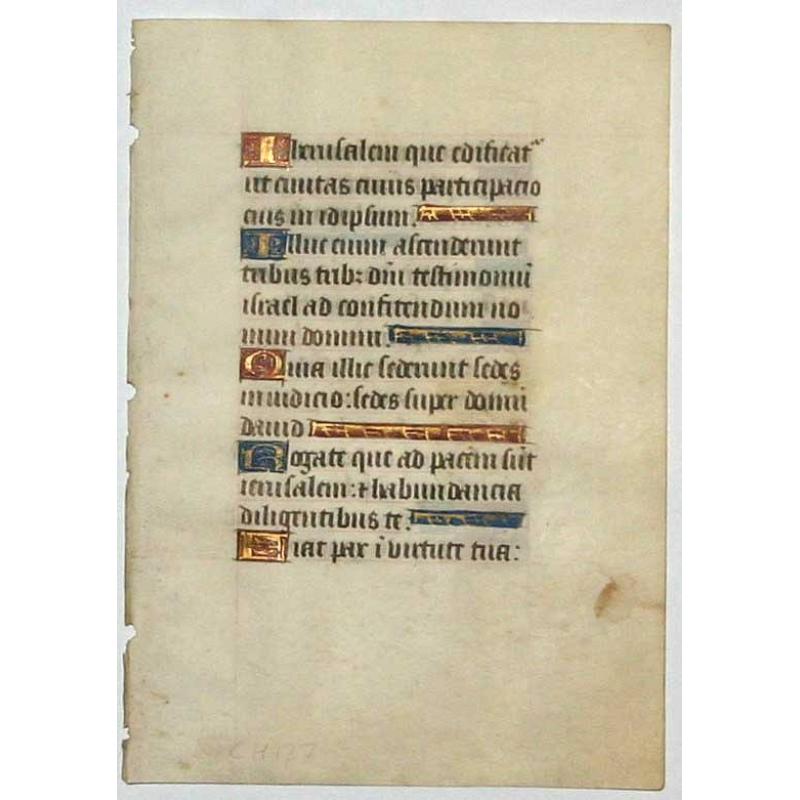 Iherusalem que edificat᷒
ut ciuitas cuius participacio
eius in idipsum.
Illuc enim ascenderunt
tribus trib: dñi testimoniũ
israel ad confitendum no
mini domini.
Quia illic sederunt sedes
in iudicio: sedes super domũ
dauid
Rogate que ad pacem sũt
ierusalem: ⁊ habundancia
diligentibus te.
Fiat pax ĩ uirtute tua:
CH177